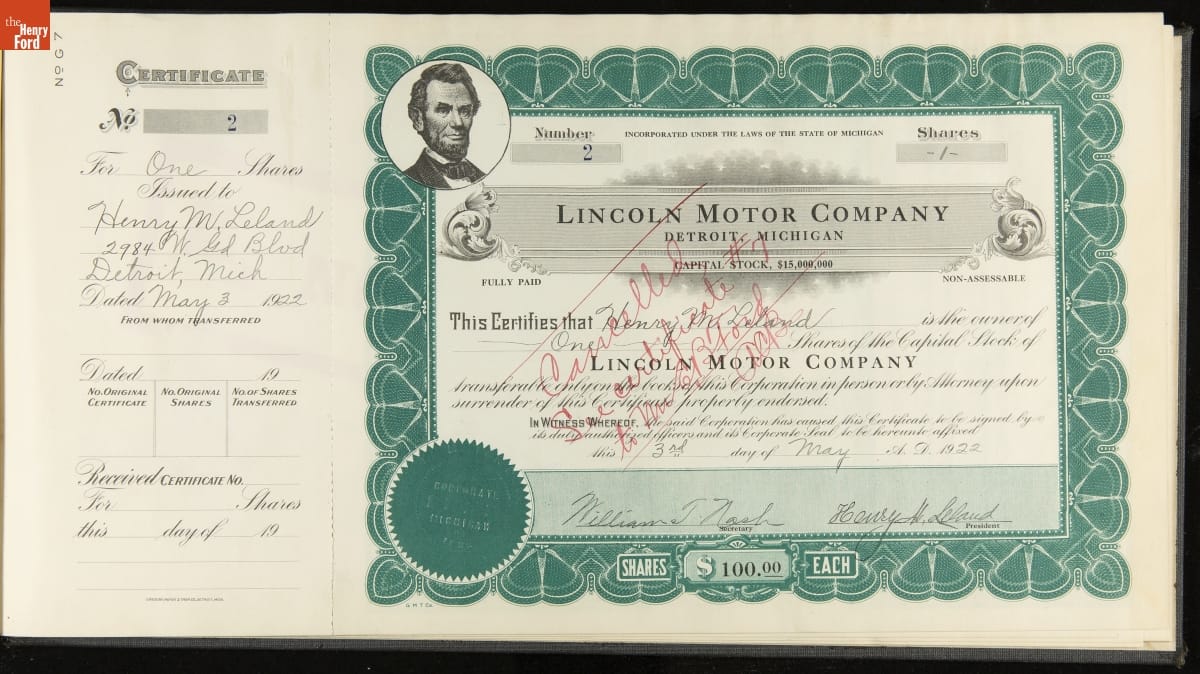 the
Henry
Ford
No G 7
CERTIFICATE
No 2
For One Shares
Issued to
Henry M. Leland
2984 W. Gd Blvd
Detroit, Mich
Dated May 3 1922
FROM WHOM TRANSFERRED
Dated 19
NO. ORIGINAL CERTIFICATE NO. ORIGINAL SHARES NO. OF SHARES TRANSFERRED
Received CERTIFICATE NO.
For Shares
this day of 19
Number INCORPORATED UNDER THE LAWS OF THE STATE OF MICHIGAN Shares
2 -1-
LINCOLN MOTOR COMPANY
DETROIT, MICHIGAN
CAPITAL STOCK, $15,000,000
FULLY PAID NON-ASSESSABLE
This Certifies that Henry M. Leland is the owner of
One Shares of the Capital Stock of
LINCOLN MOTOR COMPANY
transferable only on the books of this Corporation in person or by Attorney upon
surrender of this Certificate properly endorsed.
IN WITNESS WHEREOF, the said Corporation has caused this Certificate to be signed by
its duly authorized officers and its Corporate Seal to be hereunto affixed
this 3rd day of May A. D. 1922
Cancelled
See certificate #7
to
CORPORATE
MICHIGAN
William T Nash Henry M. Leland
Secretary President
SHARES $100.00 EACH
G M T Co.